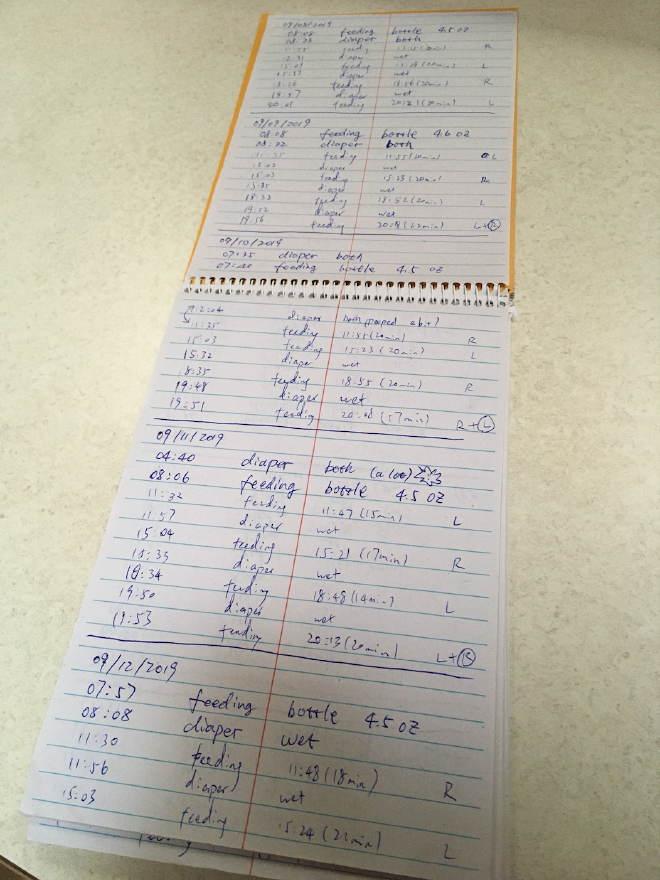 09/08/2019
08:08 feeding bottle 4.5 oz
08:23 diaper both
feeding R
diaper wet
feeding L
diaper wet
feeding R
19:57 diaper wet
20:01 feeding L
09/09/2019
08:08 feeding bottle 4.6 oz
08:22 diaper both
feeding 11:55 (20min) L
diaper wet
15:03 feeding 15:23 (20min) R
15:35 diaper wet
18:32 feeding 18:52 (20min) L
19:52 diaper wet
19:56 feeding L+R
09/10/2019
07:35 diaper both
07:40 feeding bottle 4.5 oz
diaper both (pooped a bit)
11:35 feeding 11:55 (20min) R
15:03 feeding 15:23 (20min) L
15:32 diaper wet
18:35 feeding 18:55 (20min) R
19:48 diaper wet
19:51 feeding 20:08 (17min) R+L
09/11/2019
04:40 diaper both (a lot)
08:06 feeding bottle 4.5 oz
11:32 feeding 11:47 (15min) L
11:57 diaper wet
15:04 feeding 15:21 (17min) R
15:35 diaper wet
18:34 feeding 18:48 (14min) L
19:50 diaper wet
19:53 feeding 20:13 (20min) L+R
09/12/2019
07:57 feeding bottle 4.5 oz
08:08 diaper wet
11:30 feeding 11:48 (18min) R
11:56 diaper wet
15:03 feeding 15:24 (21min) L